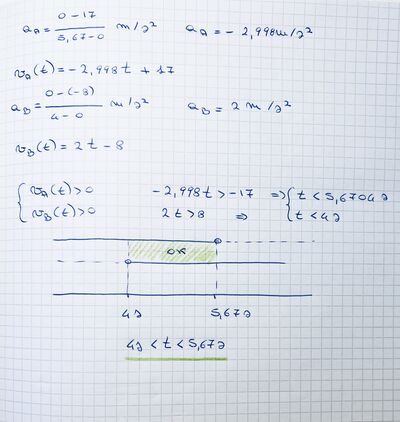 a_A = (0-17)/(5,67-0) m/s² a_A = -2,998 m/s²
v_A(t) = -2,998t + 17
a_B = (0-(-8))/(4-0) m/s² a_B = 2 m/s²
v_B(t) = 2t - 8
{ v_A(t) > 0 -2,998t > -17 ⇒ { t < 5,6704s
v_B(t) > 0 2t > 8 ⇒ t < 4s
OK
4s 5,67s
4s < t < 5,67s